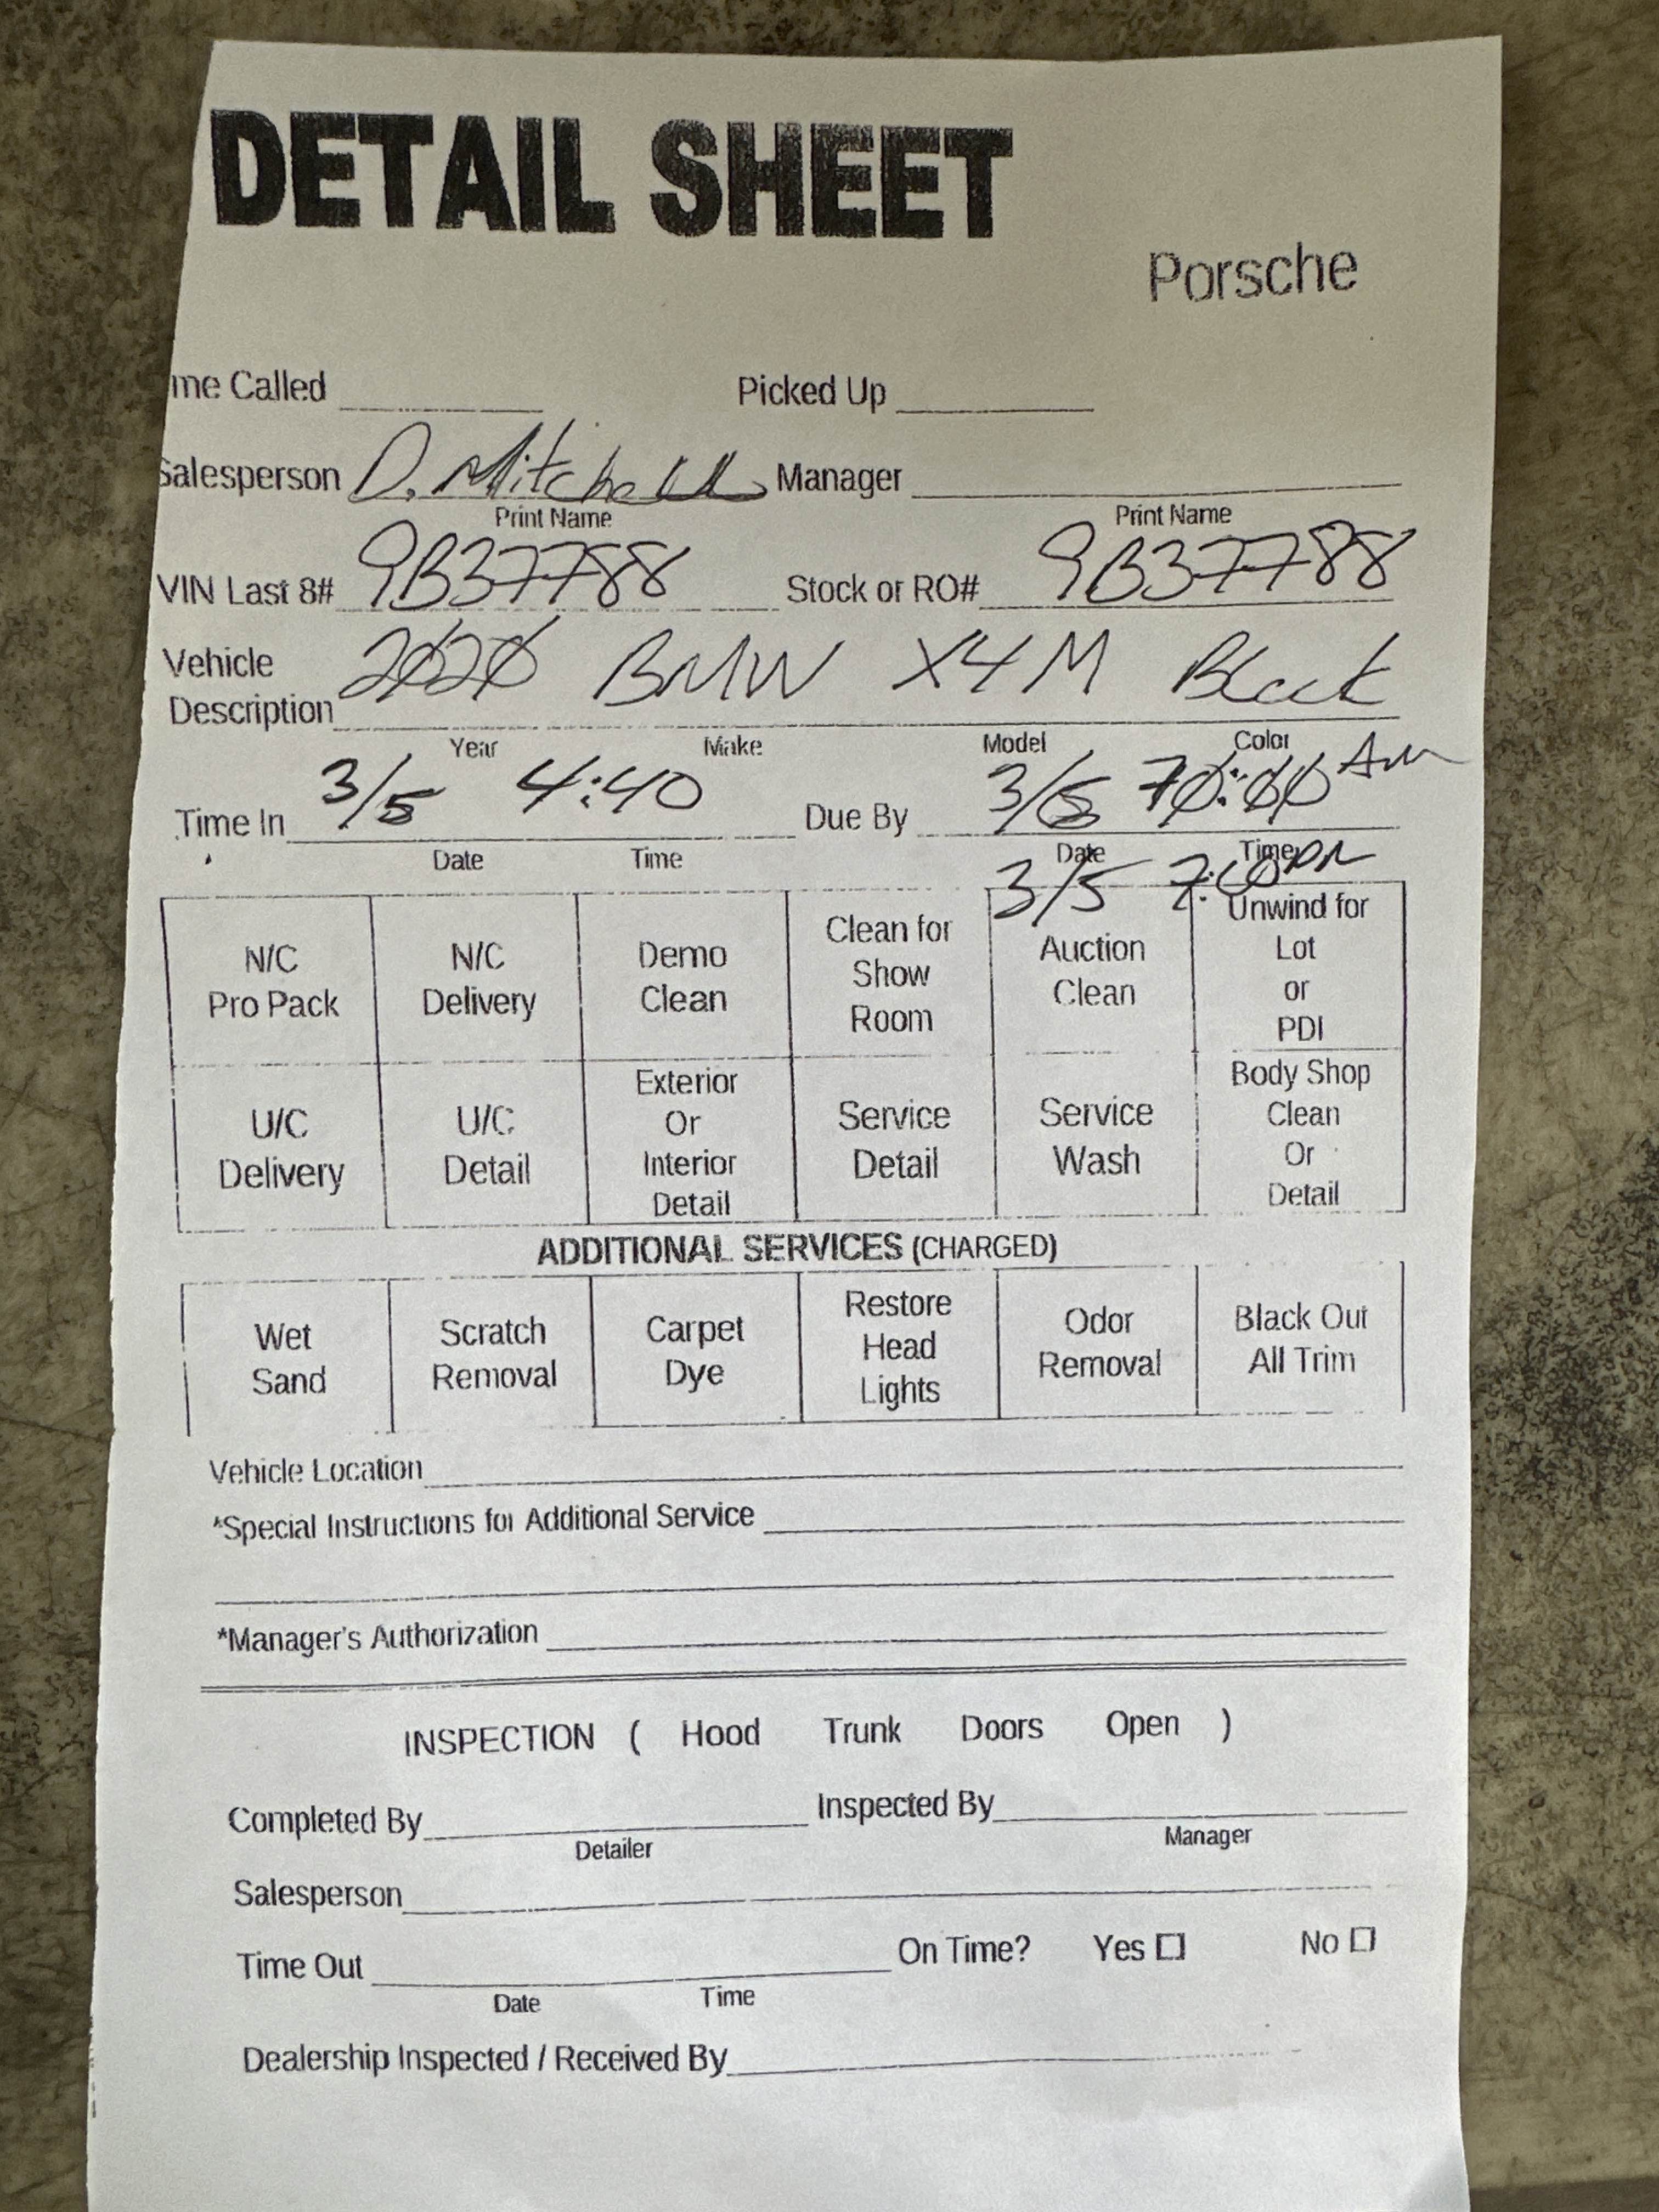 DETAIL SHEET
Porsche
me Called Picked Up
Salesperson D. Mitchell Manager
Print Name Print Name
VIN Last 8# 9B37788 Stock or RO# 9B37788
Vehicle Description 2020 BMW X4M Black
Year Make Model Color
Time In 3/5 4:40 Due By 3/6 10:00 AM
Date Time Date Time
3/5 7:00 PM
N/C Pro Pack
N/C Delivery
Demo Clean
Clean for Show Room
Auction Clean
Unwind for Lot or PDI
U/C Delivery
U/C Detail
Exterior Or Interior Detail
Service Detail
Service Wash
Body Shop Clean Or Detail
ADDITIONAL SERVICES (CHARGED)
Wet Sand
Scratch Removal
Carpet Dye
Restore Head Lights
Odor Removal
Black Out All Trim
Vehicle Location
*Special Instructions for Additional Service
*Manager's Authorization
INSPECTION ( Hood Trunk Doors Open )
Completed By Inspected By
Detailer Manager
Salesperson
Time Out On Time? Yes ☐ No ☐
Date Time
Dealership Inspected / Received By